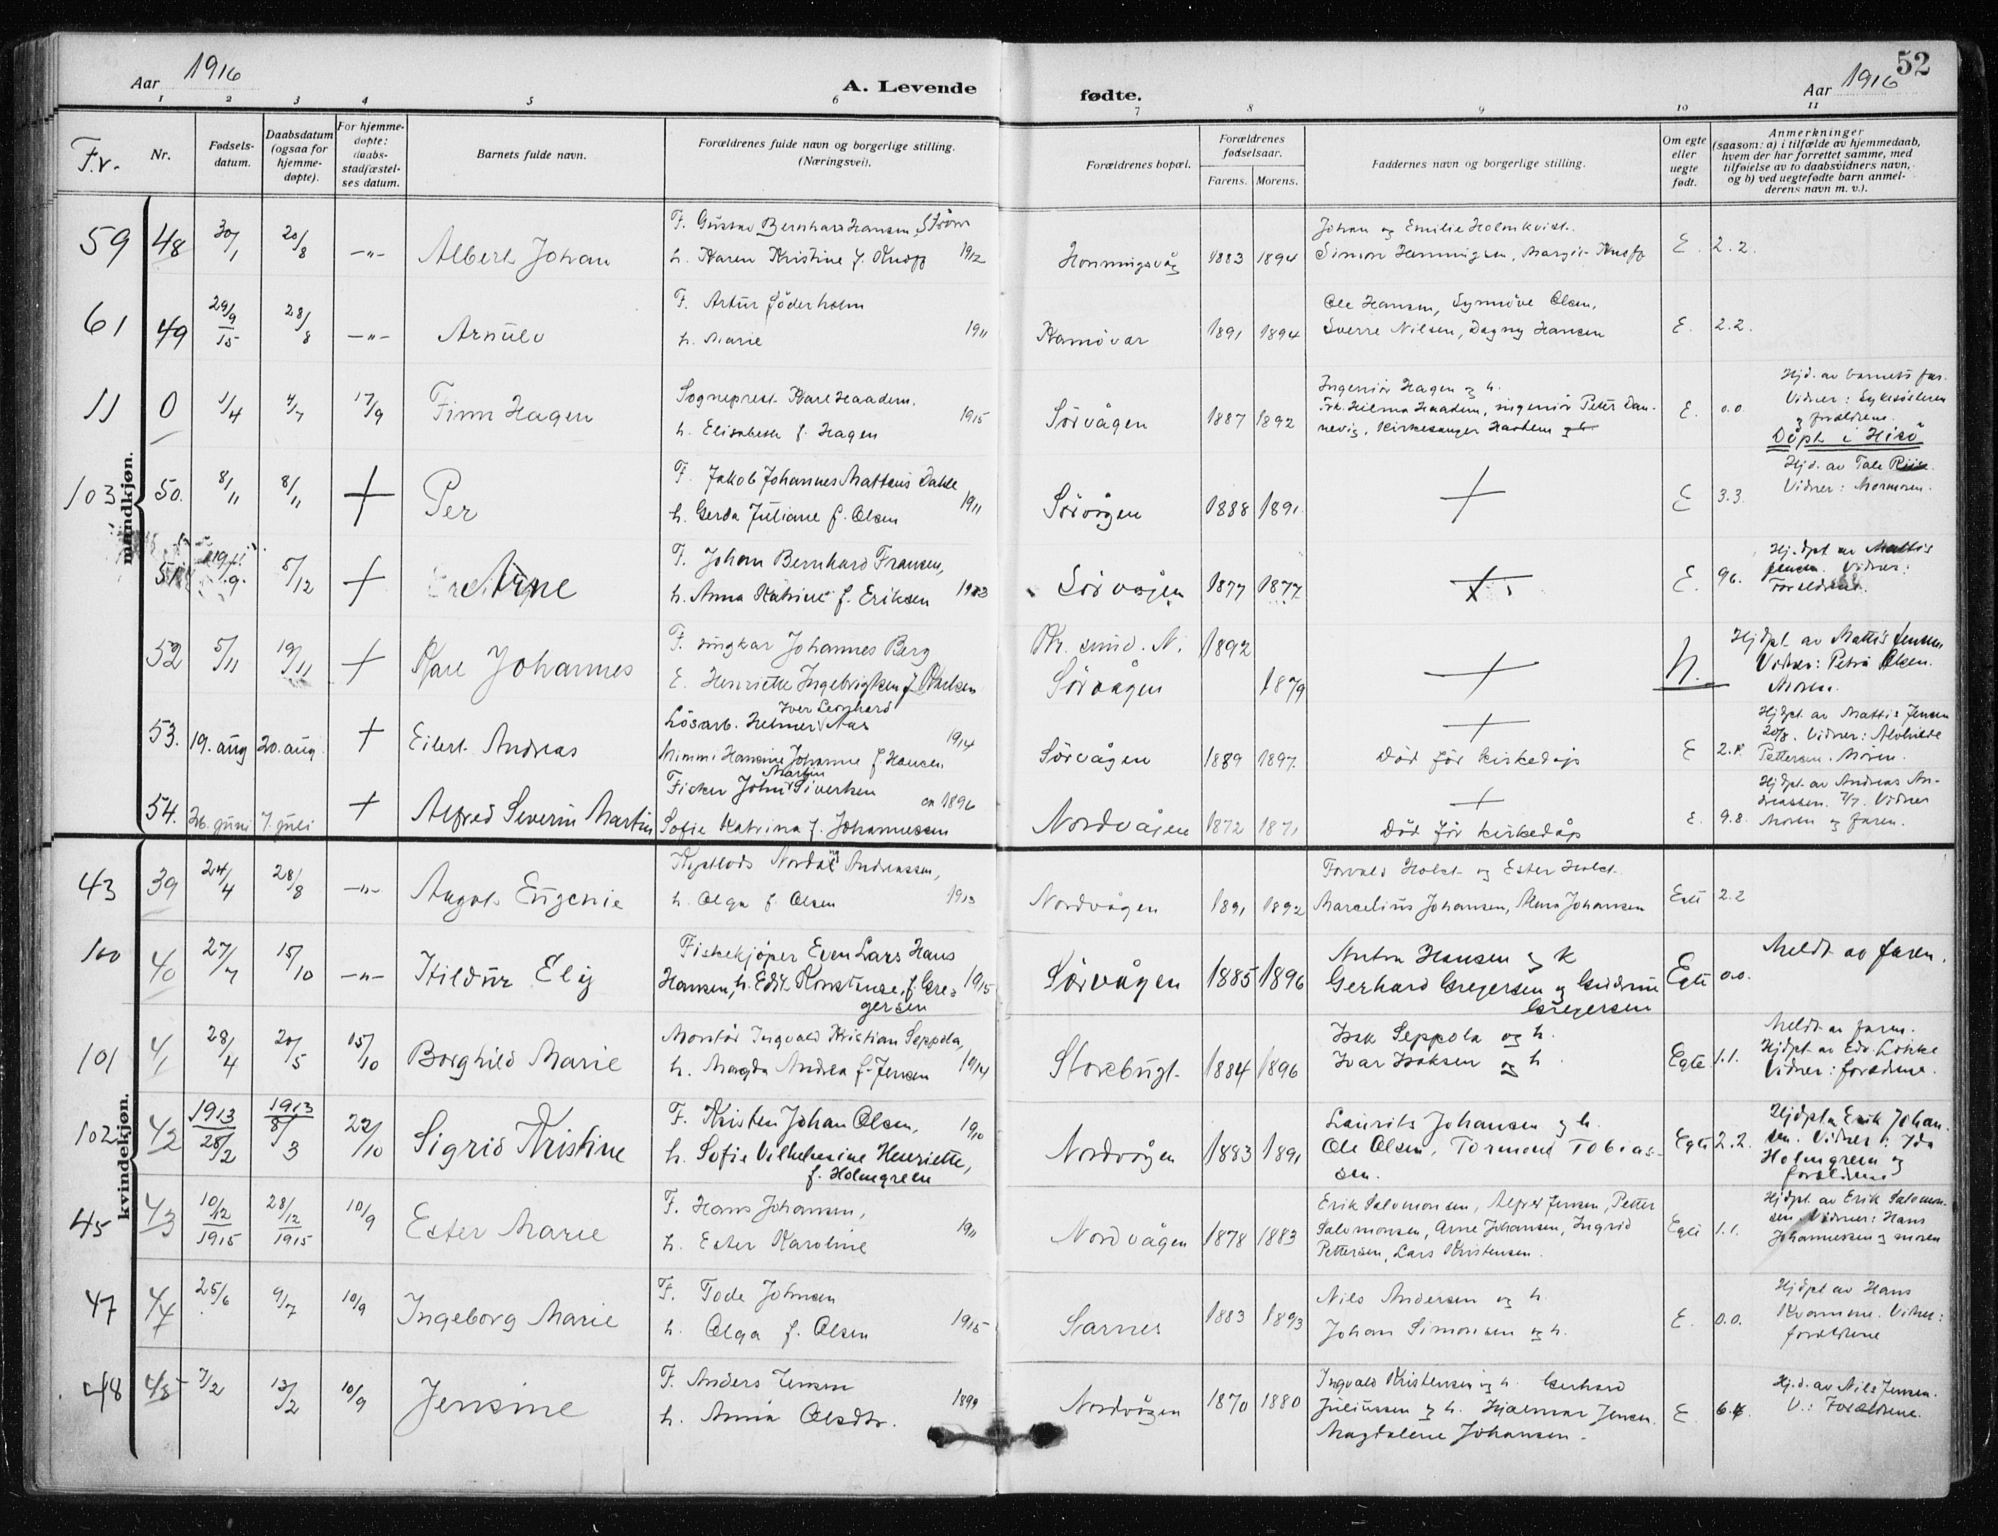 Aar 1916
A. Levende
fødte.
Aar 1916
52
1 2 3 4 5 6 7 8 9 10 11
Fr.
Nr.
Fødsels-
datum.
Daabsdatum
(ogsaa for
hjemme-
døpte).
For hjemme-
døpte:
daabs-
stadfæstel-
ses datum.
Barnets fulde navn.
Forældrenes fulde navn og borgerlige stilling.
(Næringsvei).
Forældrenes bopæl.
Forældrenes
fødselsaar.
Farens. Morens.
Faddernes navn og borgerlige stilling.
Om egte
eller
uegte
født.
Anmerkninger
(saasom: a) i tilfælde av hjemmedaab,
hvem der har forrettet samme, med
tilføielse av to daabsvidners navn,
og b) ved uegtefødte barn anmel-
derens navn m. v.).
mandkjøn.
59 48 30/1 20/8 -"- Albert Johan
F. Gustav Bernhard Hansen, Strøm
h. Karen Kristine f. Knoff 1912
Honningsvåg 1883 1894
Johan og Emilie Holmkvist.
Simon Henningsen, Margit Knoff
E 2.2.
61 49 29/9 15 28/8 -"- Arnulv
F. Artur Söderholm
h. Marie 1911
Kamövær 1891 1894
Ole Hansen, Synnöve Olsen,
Sverre Nilsen, Dagny Hansen
E 2.2.
11 0 1/4 4/7 17/9 Finn Hagen
Sogneprest Kåre Haadem.
h. Elisabeth f. Hagen 1915
Sörvågen 1887 1892
Ingeniör Hagen og h.
Frk. Hilma Haadem, ingeniör Peter Dan-
nevig, Kirkesanger Haadem og h.
E. 0.0.
Hjd. av barnets far.
Vidner: Sykesösteren
og foreldrene.
Döpt i Hisö
103 50. 8/11 8/11 + Per
F. Jakob Johannes Mattæus Dahle
h. Gerda Juliane f. Olsen 1911
Sörvågen 1888 1891
+
E 3.3.
Hjd. av Tale Riise.
Vidner: Mormoren.
51 19. 5/12 + Arne
F. Johan Bernhard Fransen,
h. Anna Katrine f. Eriksen 1903
Sörvågen 1877 1877
+
E. 9.6.
Hj.dpt av Mattis
Jensen. Vidner:
Foreldrene.
52 5/11 19/11 + Kåre Johannes
F. ungkar Johannes Berg
E. Henriette Ingebrigtsen f. Karlsen
Kr. sund. N. 1892
Sörvågen 1879
+
N.
Hjdpt. av Mattis Jensen
Vidner: Petra Olsen.
Moren.
53. 19. aug 20. aug. + Eilert Andreas
Iver Leonhard
Lösarb. Helmer Aas
Mimmi Hansine Johanne f. Hansen 1914
Sörvågen 1889 1897.
+
Död för kirkedåp
E
Hjdpt. av Mattis Jensen
20/8. Vidner: Alvhilde
Pettersen. Moren.
54. 26. juni 7. juli + Alfred Severin Martin
Martin
Fisker John Sivertsen
Sofie Katrina f. Johannessen ca 1896
Nordvågen 1872 1871
+
Död för kirkedåp
E. 9.8.
Hjdpt. av Andreas An-
dreassen. 7/7. Vidner
Moren og faren.
kvindekjøn.
43 39 24/4 28/8 -"- Aagot Eugenie
Nordal Andreassen,
h. Olga f. Olsen 1913
Nordvågen 1891 1892
Torvald Holst og Ester Holst.
Marcelius Johansen, Alma Johansen
Egte 2.2
100 40 27/7 15/10 -"- Hildur Ely
Fiskekjöper Even Lars Hans
Hansen, h. Edit Konstanse, f. Gre-
gersen 1915
Sörvågen 1885 1896
Anton Hansen og k
Gerhard Gregersen og Gudrun
Gregersen
Egte 0.0.
Meldt av faren.
101 41 28/4 20/5 15/10 Borghild Marie
Montör Ingvald Kristian Seppola,
h. Magda Andrea f. Jensen 1914
Storebugt. 1884 1896
Isak Seppola og h.
Ivar Isaksen og h.
Egte 1.1.
Meldt av faren.
Hjdpt. av Edv. Lökke
Vidner: foreldrene.
102 42 1913 28/2 1913 8/3 22/10 Sigrid Kristine
F. Kristen Johan Olsen,
h. Sofie Vilhelmine Henriette,
f. Holmgreen 1910
Nordvågen 1883 1891
Laurits Johansen og h.
Ole Olsen, Tormond Tobias-
sen.
Egte 2.2.
Hjdpt av Erik Johan-
sen. Vidner: Ida
Holmgreen og
foreldrene
45 43 10/12 1915 28/12 1915 10/9 Ester Marie
F. Hans Johansen,
h. Ester Karoline 1911
Nordvågen 1878 1883
Erik Salomonsen, Alfred Jensen, Petter
Salomonsen, Arne Johansen, Ingrid
Pettersen, Lars Kristensen.
Egte 1.1.
Hjdpt. av Erik Salomon-
sen. Vidner: Hans
Johannessen og moren
47 44 25/6 9/7 10/9 Ingeborg Marie
F. Tode Johnsen
h. Olga f. Olsen 1915
Sarnes 1883 1893
Nils Andersen og h.
Johan Simonsen og h.
E. 0.0.
Hjdpt av Hans
Kvamme. Vidner:
foreldrene
48 45 7/2 13/2 10/9 Jensine
F. Anders Jensen
h. Anna Olsdtr. 1899
Nordvågen 1870 1880
Ingvald Kristensen og h. Gerhard
Juliussen og h. Hjalmar Jensen.
Magdalene Johansen.
E
Hj.d. av Nils Jensen.
V.: Foreldrene.